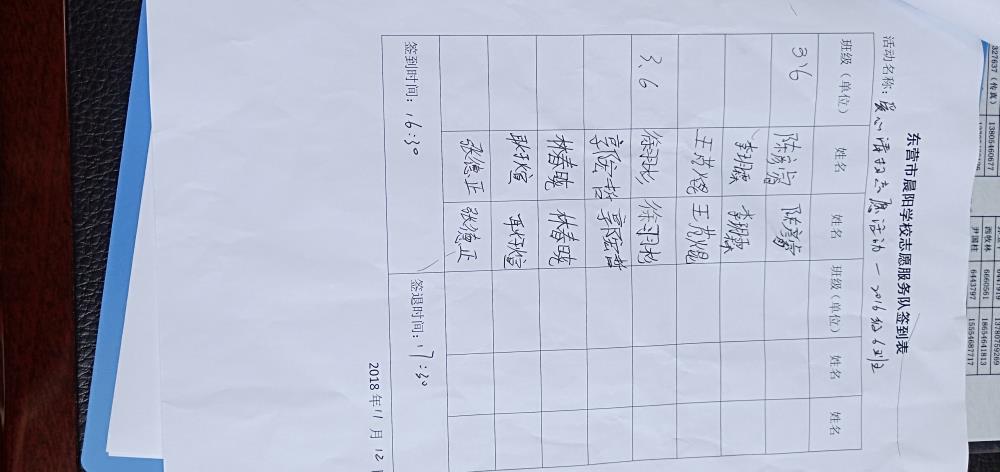 东营市晨阳学校志愿服务队签到表
活动名称：爱心清扫志愿活动—2016级6班
班级（单位） 姓名 姓名 班级（单位） 姓名 姓名
3、6 陈彦霄 陈彦霄
李玥霖 李玥霖
王艺焜 王艺焜
3、6 徐羽彤 徐羽彤
林春晓 林春晓
张德正 张德正
签到时间：16:30 签退时间：17:30
2018年11月12
327637（传真） 13805460677
13780759269
西牧林 6660561 18654641813
尹国柱 6443797 15554687717